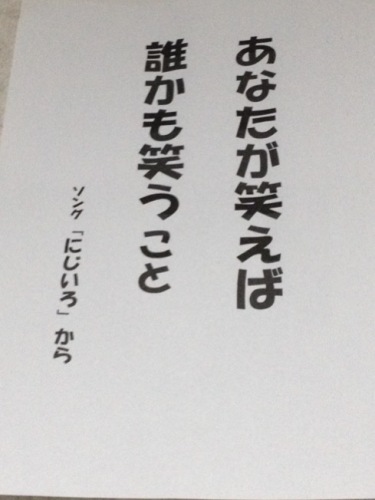 あなたが笑えば
誰かも笑うこと
ソング「にじいろ」から